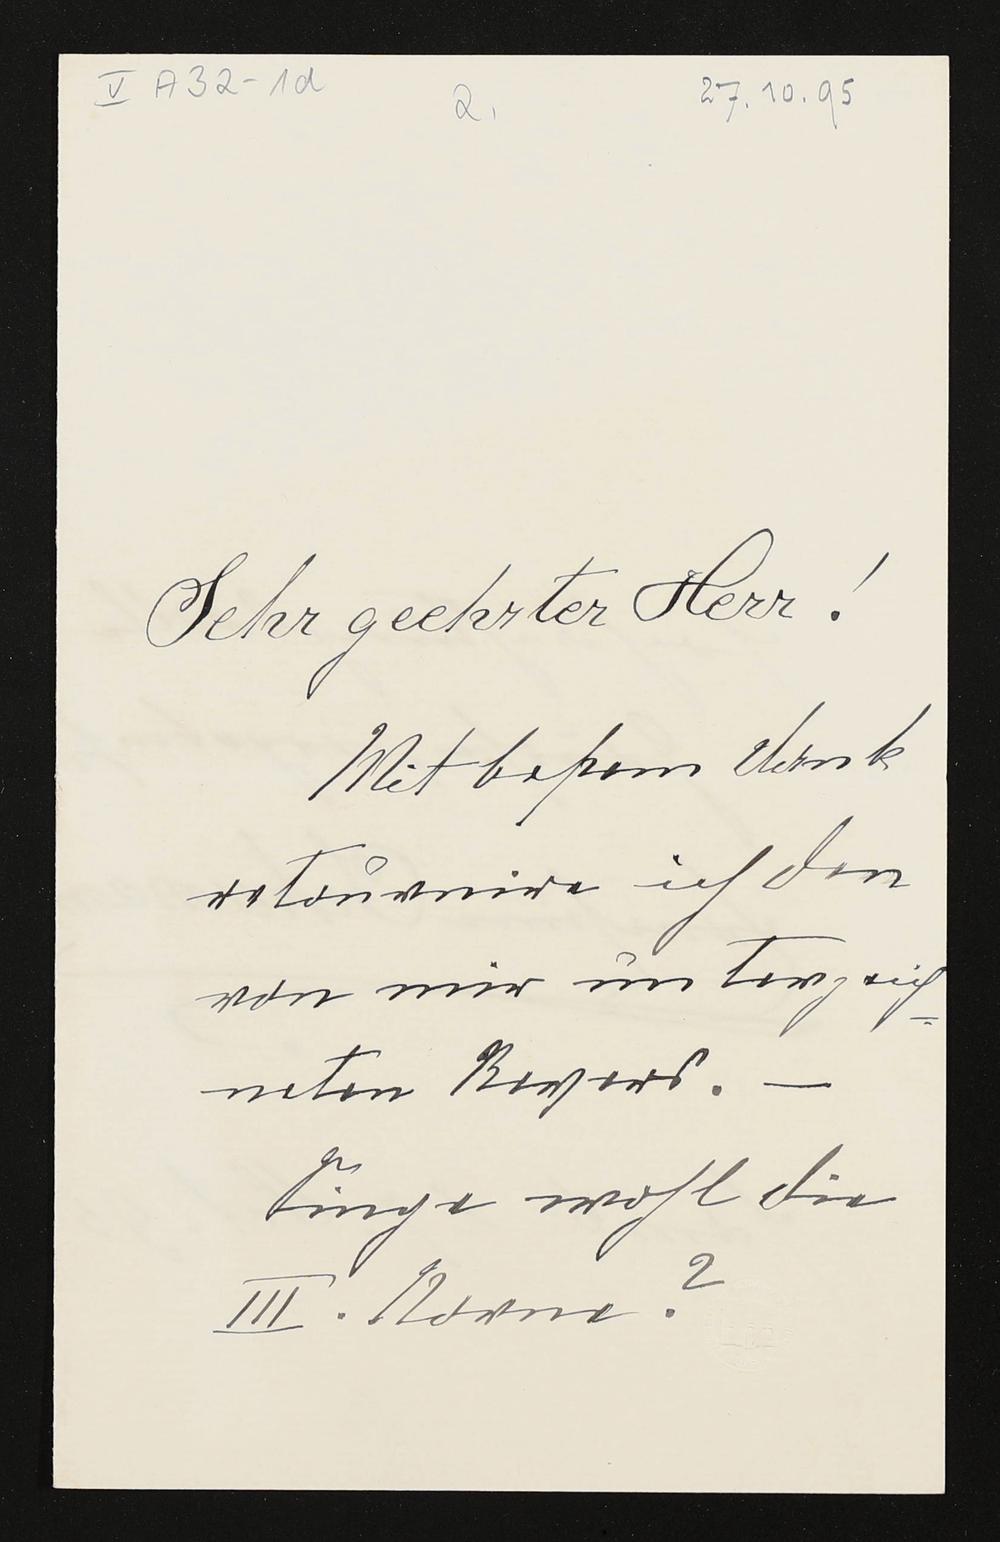 V A32-1d
2.
27.10.95
Sehr geehrter Herr!
Mit bestem Dank
retournire ich den
von mir unterzeich=
neten Revers. —
Singe wohl die
III. Norne?